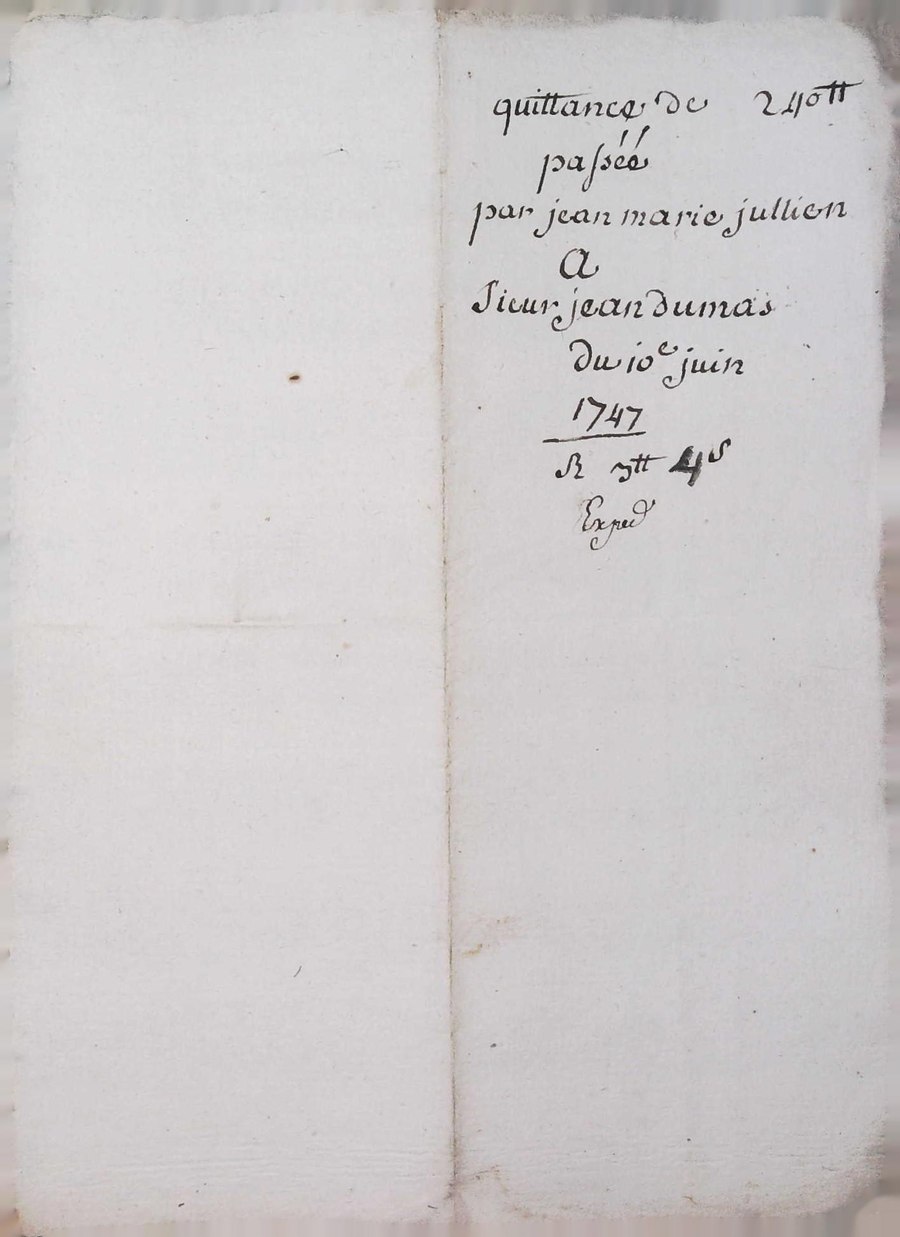 quittance de 240tt
passéé
par jean marie jullien
A
Sieur jean Dumas
du 10e juin
1747
R 3tt 4s
Exped